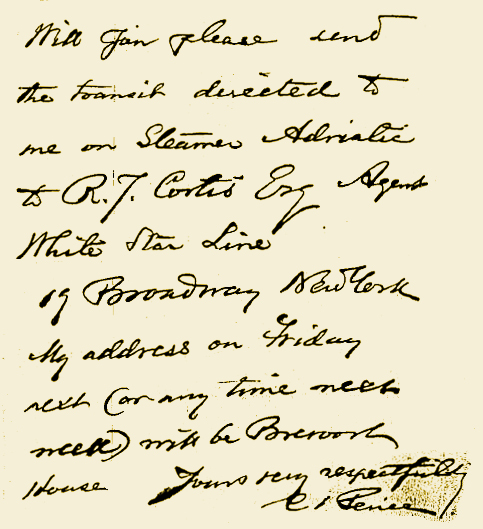 Will you please send
the transit directed to
me on Steamer Adriatic
to R. J. Cortis Esq Agent
White Star Line
19 Broadway New York
My address on Friday
next (or any time next
week) will be Brevoort
House Yours very respectfully
C S Peirce